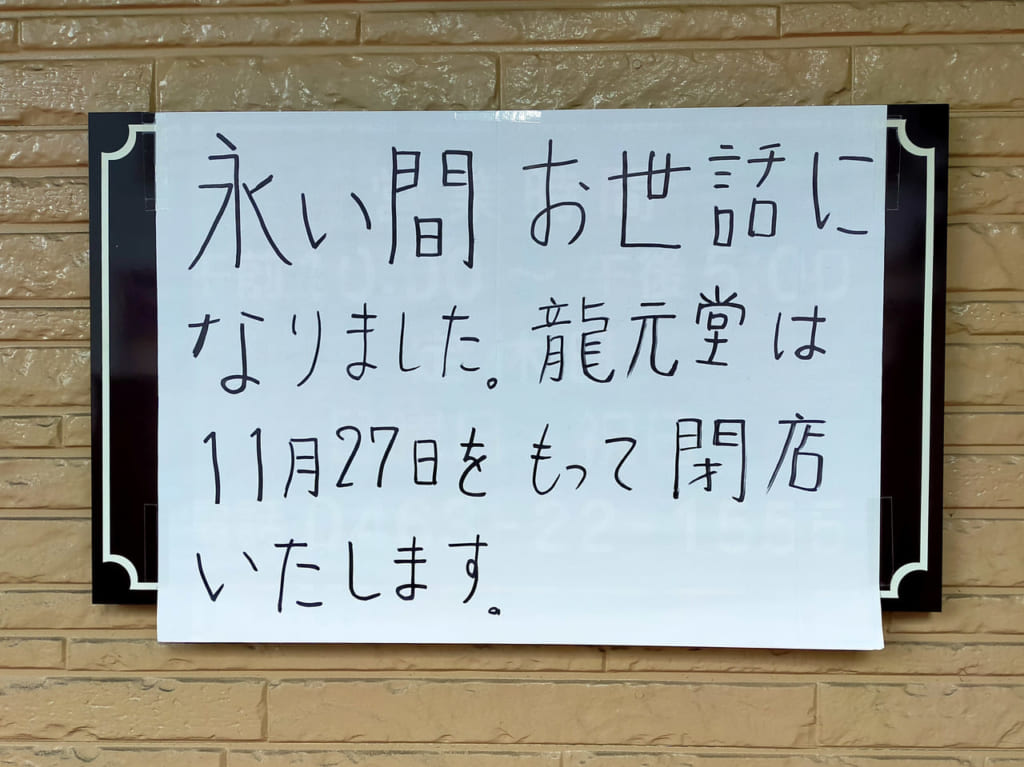 永い間 お世話に
なりました。龍元堂は
11月27日を もって 閉店
いたします。